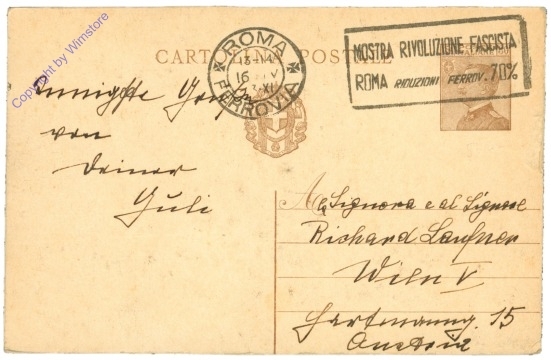 Copyright by Wimstore
CARTOLINA POSTALE
ROMA
13-14
16
FERROVIA
MOSTRA RIVOLUZIONE FASCISTA
ROMA RIDUZIONI FERROV. 70%
Innigste
von
Deiner
Juli
Alla Signora e al Signore
Richard
Wien V
15
Austria